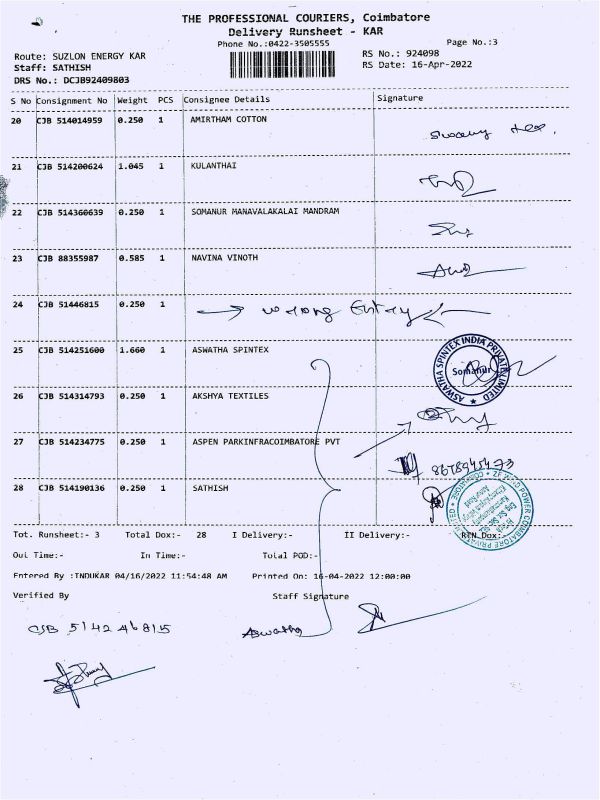 THE PROFESSIONAL COURIERS, Coimbatore
Delivery Runsheet - KAR
Phone No.:0422-3505555
Page No.:3
Route: SUZLON ENERGY KAR
RS No.: 924098
Staff: SATHISH
RS Date: 16-Apr-2022
DRS No.: DCJB92409803
S No Consignment No Weight PCS Consignee Details Signature
20 CJB 514014959 0.250 1 AMIRTHAM COTTON
21 CJB 514200624 1.045 1 KULANTHAI
22 CJB 514360639 0.250 1 SOMANUR MANAVALAKALAI MANDRAM
23 CJB 88355987 0.585 1 NAVINA VINOTH
24 CJB 51446815 0.250 1 wrong Entry
25 CJB 514251600 1.660 1 ASWATHA SPINTEX
ASWATHA SPINTEX INDIA PRIVATE LIMITED
Somanur
26 CJB 514314793 0.250 1 AKSHYA TEXTILES
27 CJB 514234775 0.250 1 ASPEN PARKINFRACOIMBATORE PVT
28 CJB 514190136 0.250 1 SATHISH
Tot. Runsheet:- 3 Total Dox:- 28 I Delivery:- II Delivery:- RTN Dox:-
Out Time:- In Time:- Total POD:-
Entered By :INDUKAR 04/16/2022 11:54:48 AM Printed On: 16-04-2022 12:00:00
Verified By Staff Signature
CJB 514246815 Aswatha